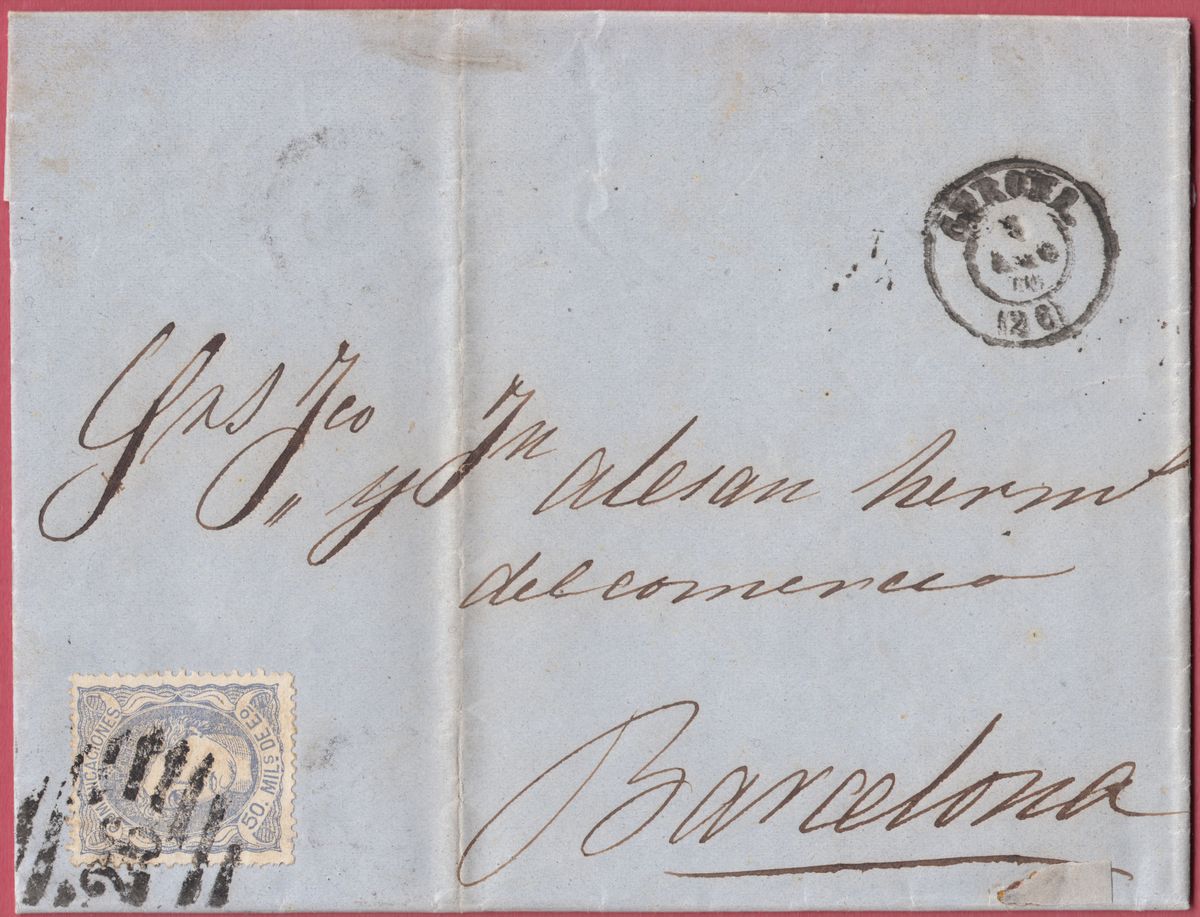 GERONA
3
AGO
(26)
Srs Fco
" y Jn alesan herms
del comercio
Barcelona
COMUNICACIONES
50. MILS DE Eo.